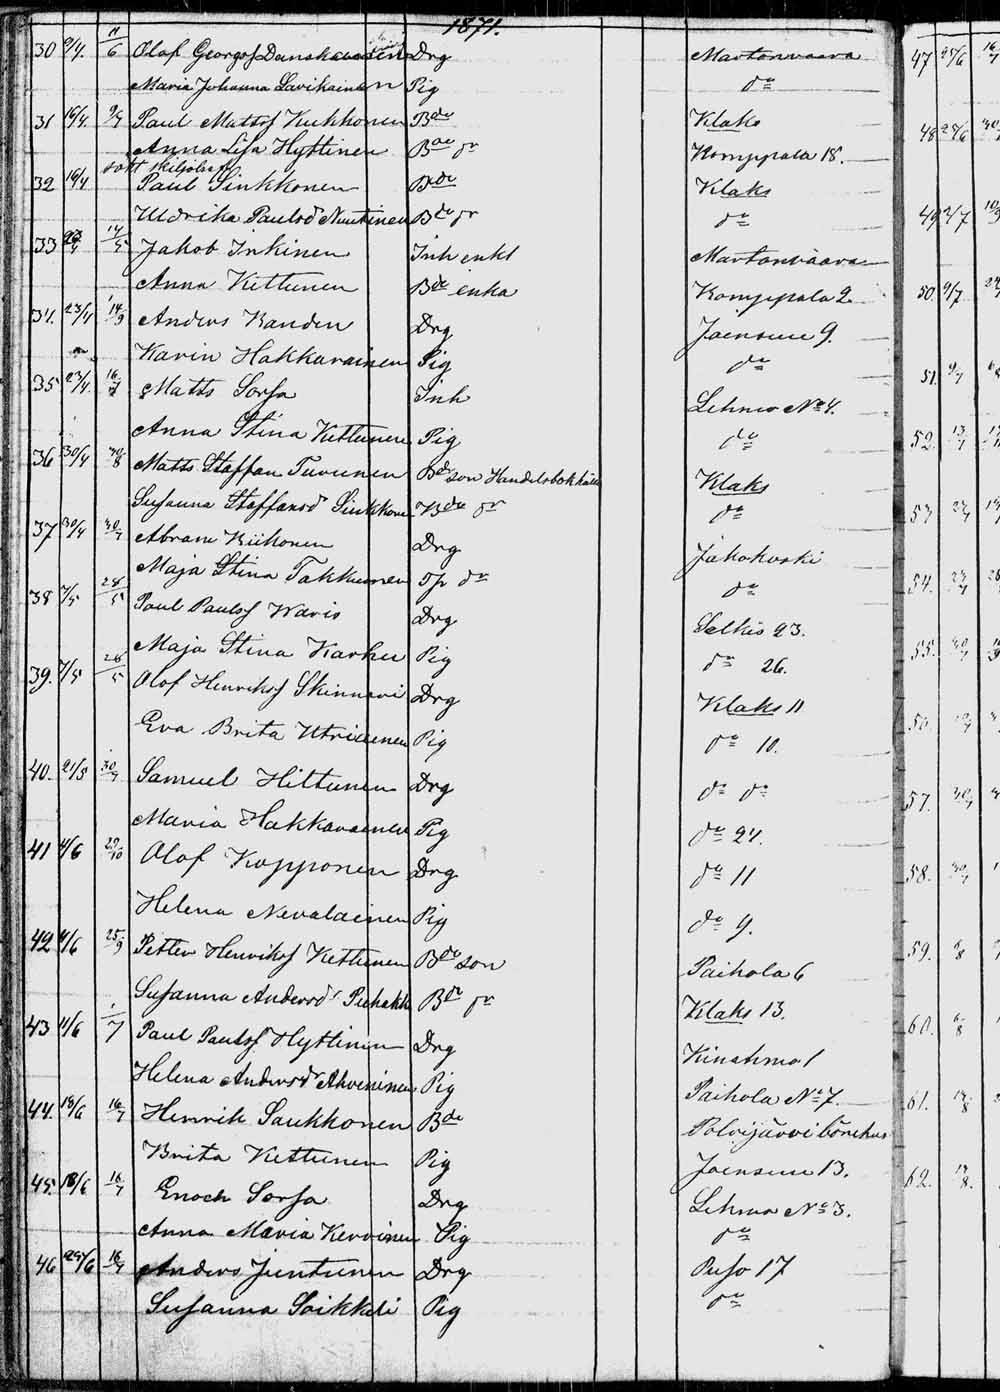 1871.
30 9/4. 11/6 Olof Georgsf Danskanen Drg Martonvaara
Maria Johanna Lavikainen Pig do
31 16/4 9/7 Paul Mattsf Kukkonen Bde Klaks
Anna Lisa Hyttinen Bde dr Komppala 18.
sökt skiljobref
32 16/4 Paul Sinkkonen Bde Klaks
Uldrika Paulsd Nuutinen Bde dr do
33 23/4 14/5 Jakob Inkinen Inh enkl Martonvaara
Anna Kettunen Bde enka Komppala 2
34. 23/4 14/9 Anders Kanden Drg Joensuu 9.
Karin Hakkarainen Pig do
35 23/4. 16/7 Matts Sorsa Inh Lehmo No 4.
Anna Stina Kettunen Pig do
36 30/4 Matts Staffan Turunen Bde son Handelsbokhålla Klaks
Susanna Staffansd Sinkkone Bde dr do
37 30/4 30/7 Abram Kiikonen Drg Jakokoski
Maja Stina Takkunen Op do do
38 7/5 28/5 Paul Paulsf Waris Drg Selkis 23.
Maja Stina Karhu Pig do 26.
39. 7/5 28/5 Olof Henriksf Skinnari Drg Klaks 11
Eva Brita Utriainen Pig do 10.
40. 21/5 30/7 Samuel Hiltunen Drg do do
Maria Hakkarainen Pig do 24.
41 4/6 29/10 Olof Kopponen Drg do 11
Helena Nevalainen Pig do 9.
42 4/6 25/9 Petter Henriksf Kettunen Bde son Paihola 6
Susanna Andersd Puhakk Bde dr Klaks 13.
43 11/6 /7 Paul Paulsf Hyttinen Drg Kinahmo 1
Helena Andersd Ahveninen Pig Paihola No 7.
44. 18/6 16/7 Henrik Saukkonen Bde Polvijärvi bönehus
Brita Kettunen Pig Joensuu 13.
45. 18/6 16/7 Enoch Sorsa Drg Lehmo No 3.
Anna Maria Kervinen Pig do
46 24/6 16/7 Anders Juntunen Drg Puso 17
Susanna Soikkeli Pig do
47 25/6
48 25/6
49 2/7
50. 9/7
51. 9/7
52.
53
54.
55.
56.
57.
58.
59.
60.
61.
62.